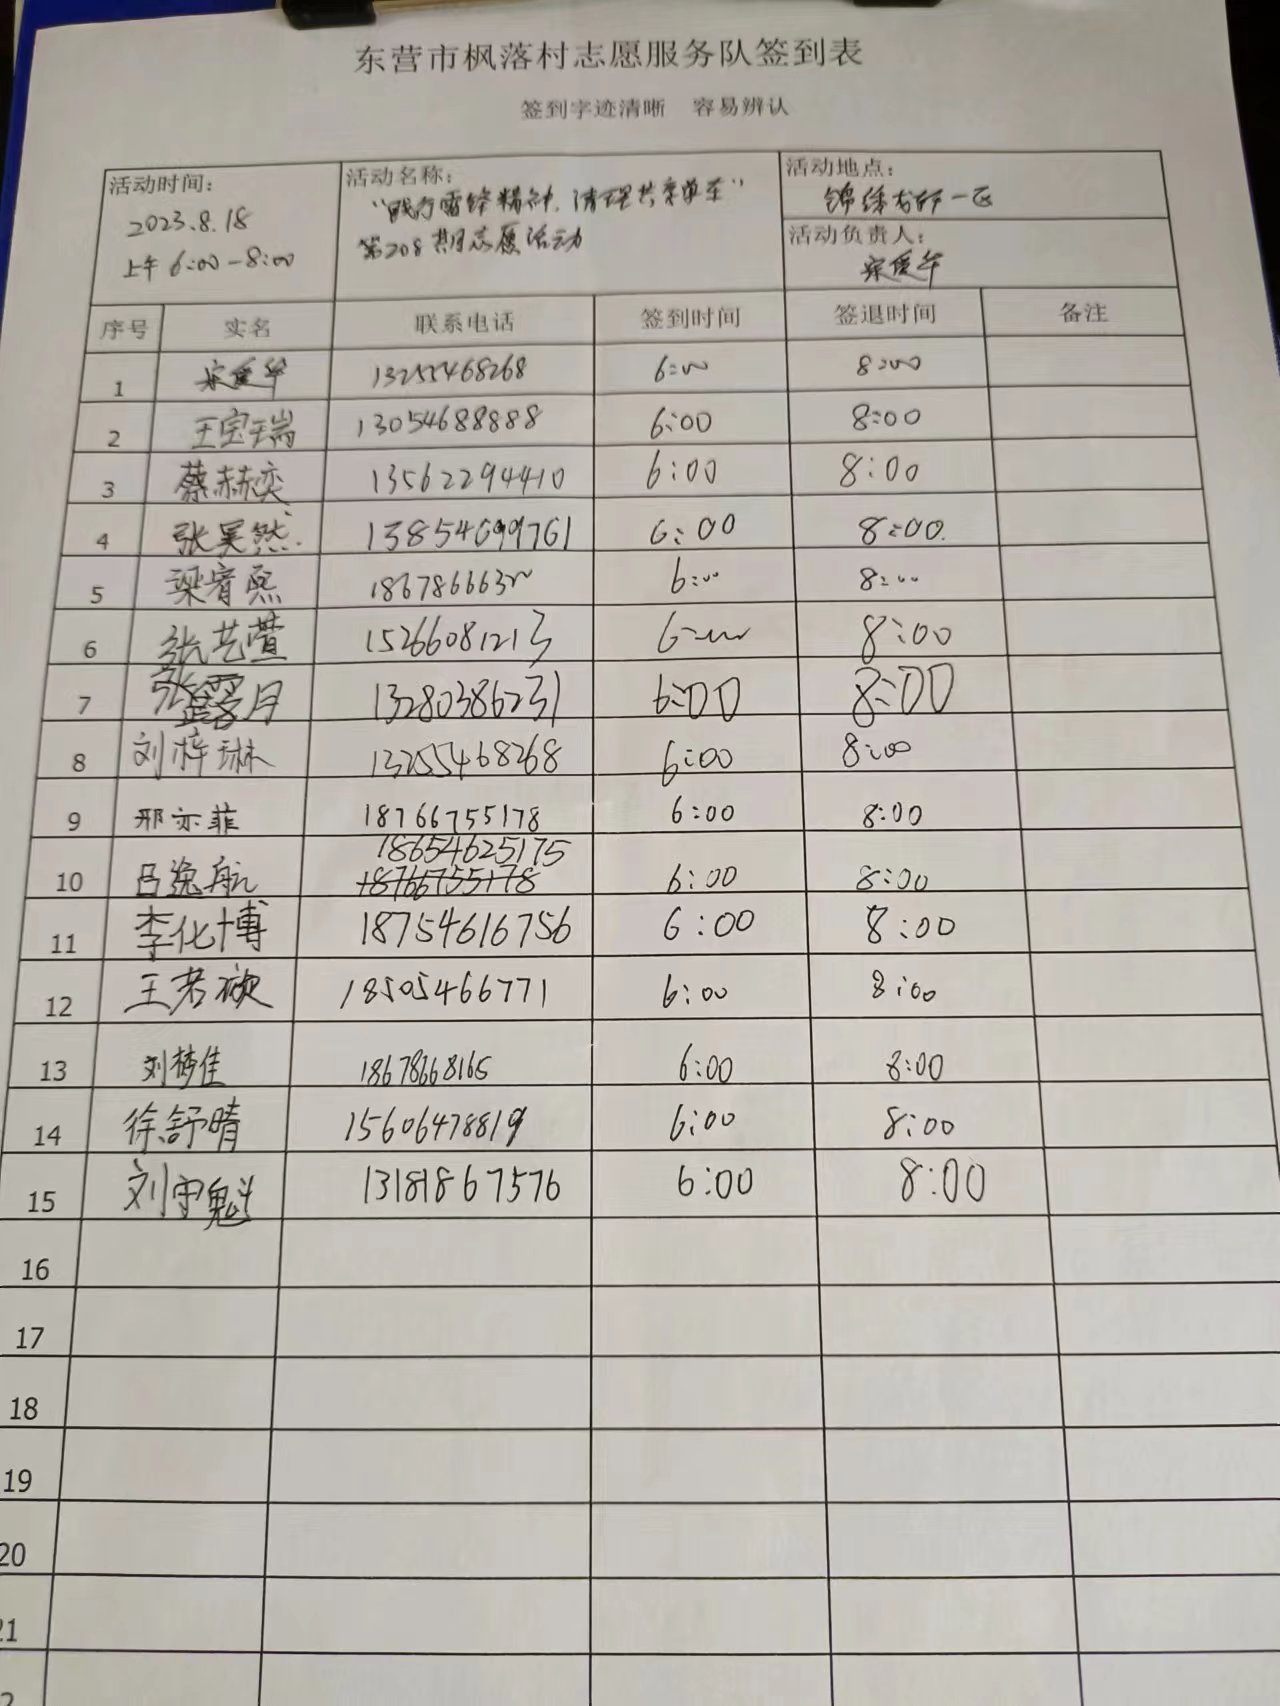 东营市枫落村志愿服务队签到表
签到字迹清晰 容易辨认
活动时间：
2023.8.18
上午 6:00-8:00
活动名称：
“践行雷锋精神，清理共享单车”
第208期志愿活动
活动地点：
锦绣龙轩一区
活动负责人：
宋爱华
序号 实名 联系电话 签到时间 签退时间 备注
1 宋爱华 13255468268 6:00 8:00
2 王宝瑞 13054688888 6:00 8:00
3 蔡赫奕 13562294410 6:00 8:00
4 张昊然. 13854699761 6:00 8:00.
5 梁宥熙 6:00 8:00
6 张艺萱 15266081213 6:00 8:00
7 张露月 13280386231 6:00 8:00
8 刘梓琳 13255468268 6:00 8:00
9 邢亦菲 18766755178 6:00 8:00
18654625175
10 吕逸航 18766755178 6:00 8:00
11 李化博 18754616756 6:00 8:00
12 王若 18505466771 6:00 8:00
13 刘梦佳 18678668165 6:00 8:00
14 徐舒晴 15606478819 6:00 8:00
15 刘宇魁 13181867576 6:00 8:00
16
17
18
19
20
21